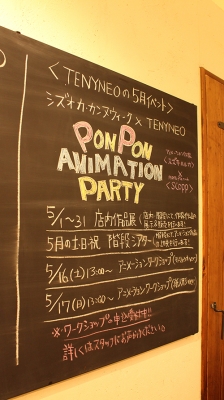 <TENYNEOの5月イベント>
シズオカ・カンヌウィーク × TENYNEO
PONPON
ANIMATION
PARTY
5/1~31 店内作品展
5月の土日祝 階段シアター
5/16(土)13:00~ アニメーションワークショップ
5/17(日)13:00~ アニメーションワークショップ
※ワークショップの申込受付中!!
詳しくはスタッフにお声がけください。